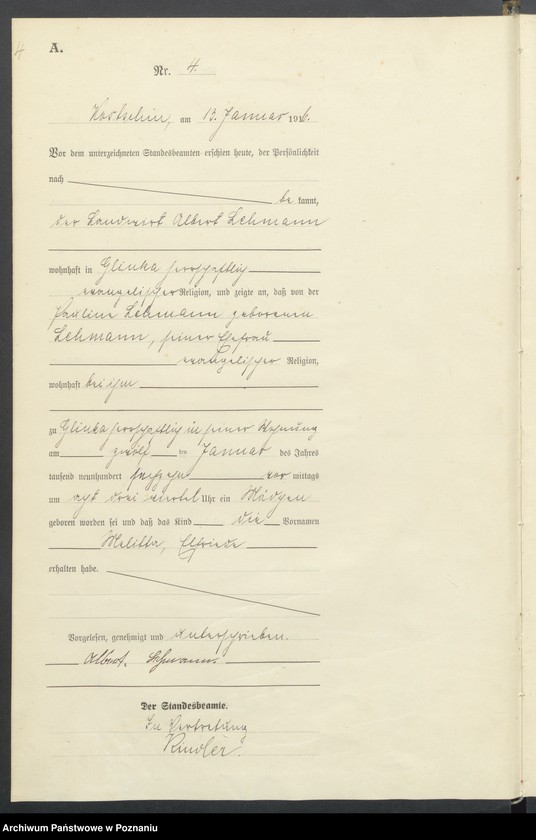 4
A.
Nr. 4.
Kostschin, am 13. Januar 1916.
Vor dem unterzeichneten Standesbeamten erschien heute, der Persönlichkeit
nach
be kannt,
der Landwirt Albert Lehmann
wohnhaft in Glinka herrschaftlich
evangelischer Religion, und zeigte an, daß von der
Pauline Lehmann geborenen
Lehmann, seiner Ehefrau
evangelischer Religion,
wohnhaft bei ihm
zu Glinka herrschaftlich in seiner Wohnung
am zwölf ten Januar des Jahres
tausend neunhundert sechzehn vor mittags
um acht drei viertel Uhr ein Mädchen
geboren worden sei und daß das Kind die Vornamen
Melitta, Elfriede
erhalten habe.
Vorgelesen, genehmigt und unterschrieben.
Albert Lehmann
Der Standesbeamte.
In Vertretung
Kindler.
Archiwum Państwowe w Poznaniu